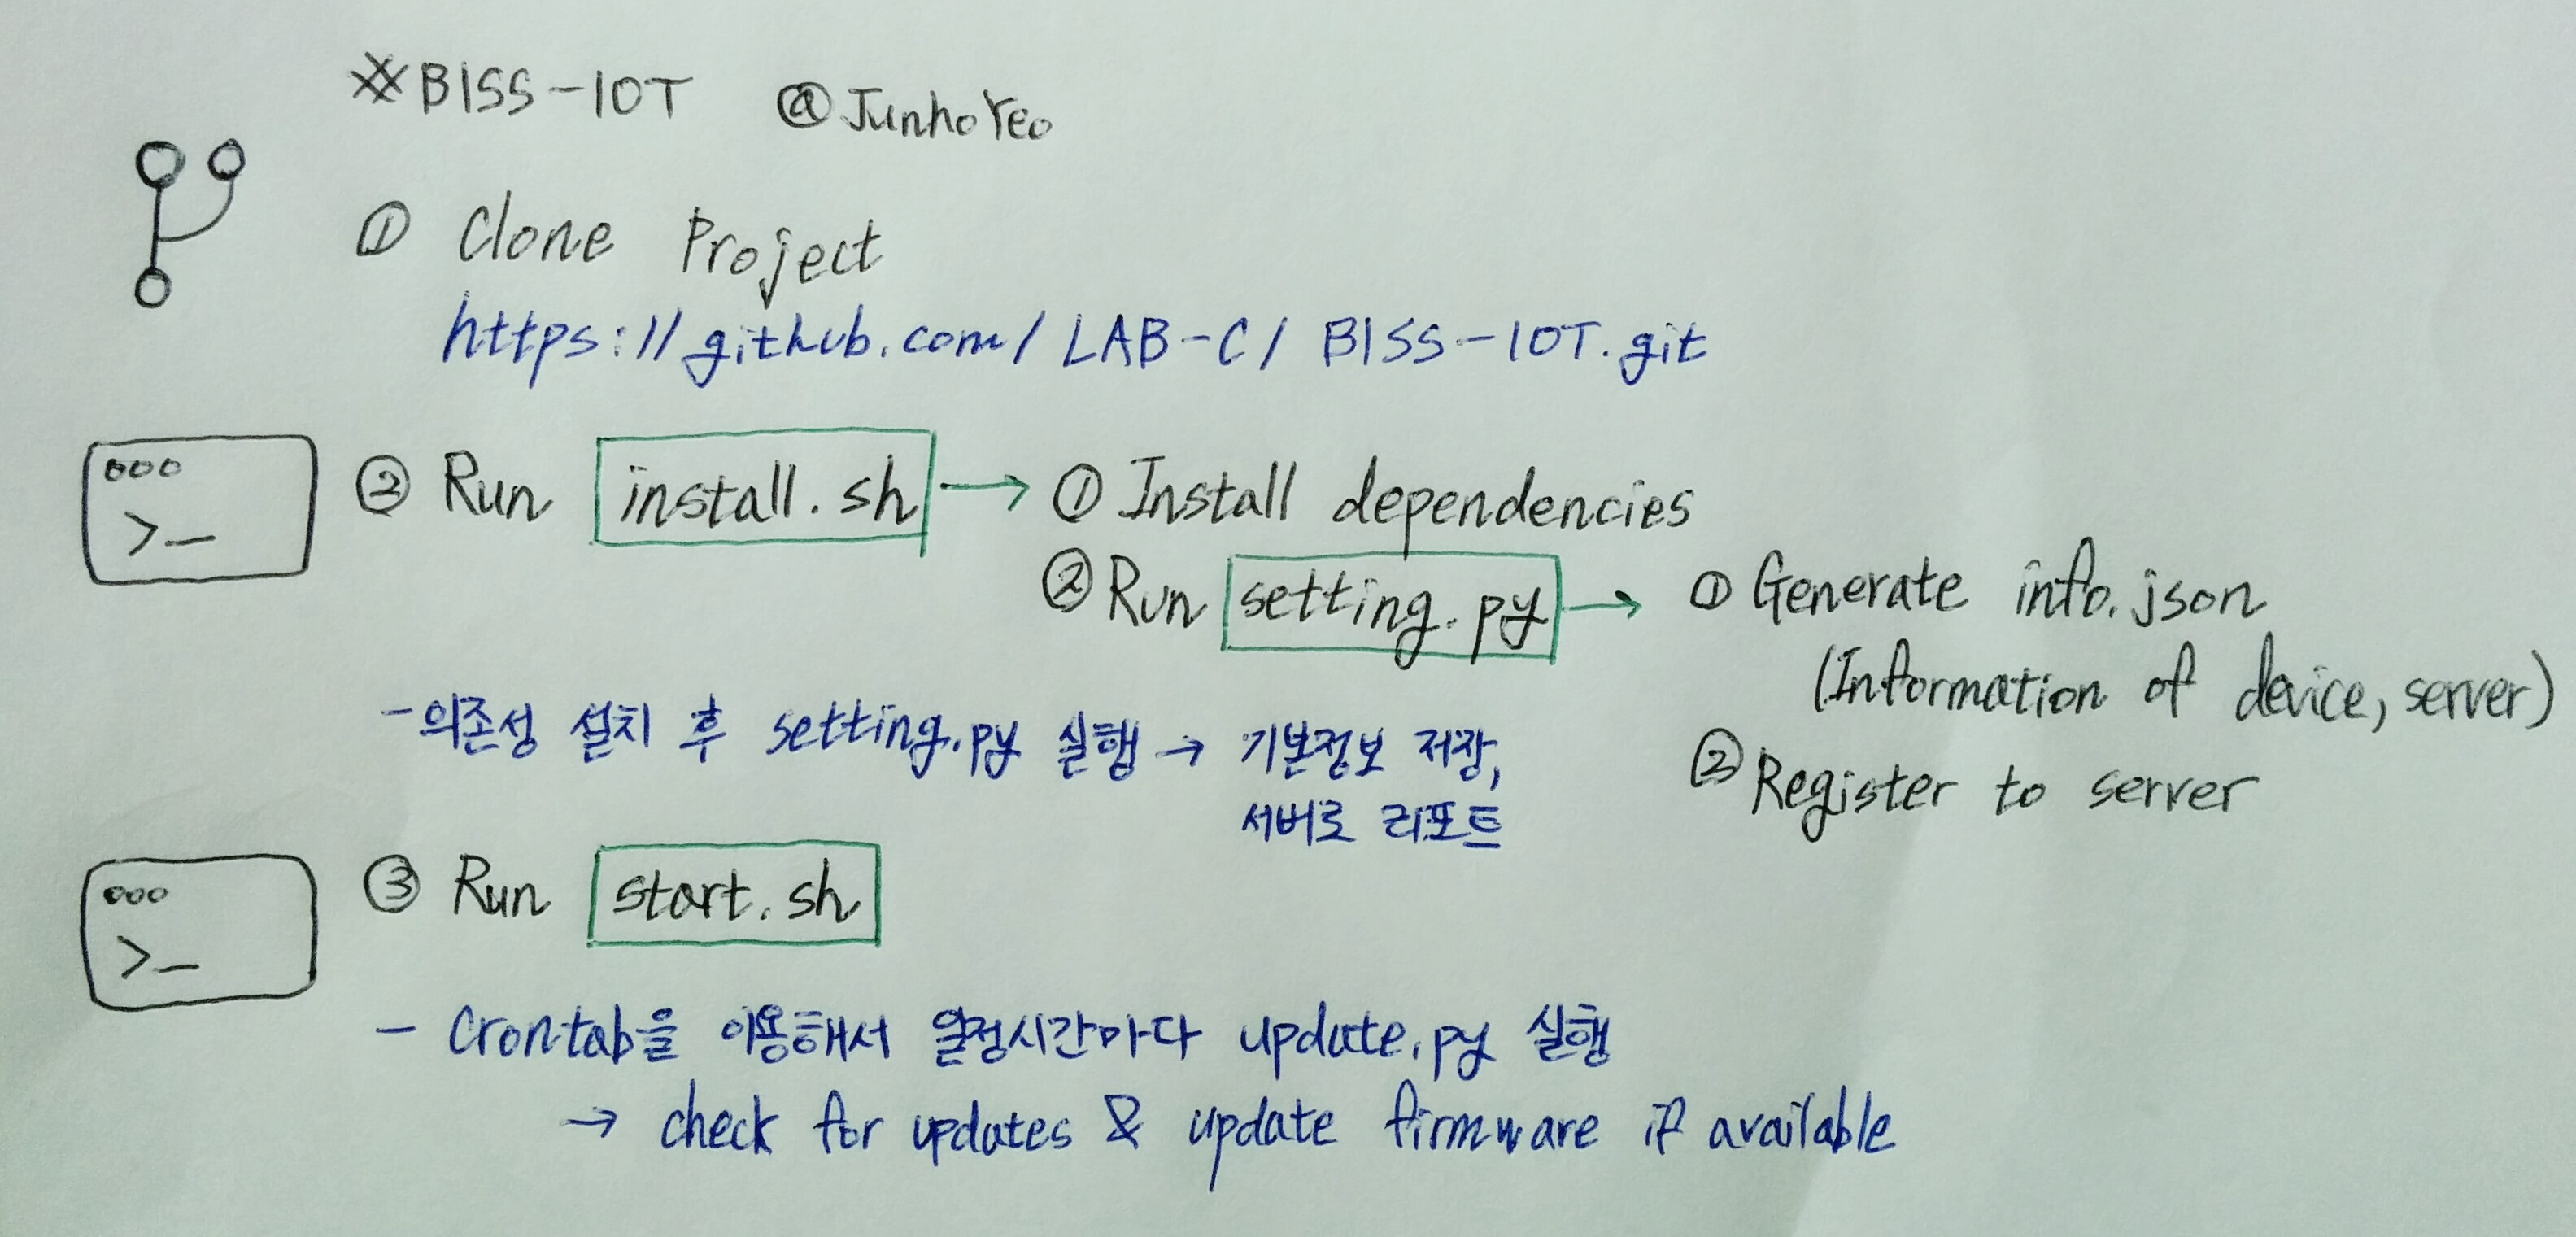 ※BISS-IOT @JunhoYeo
① Clone Project
https://github.com/LAB-C/BISS-IOT.git
ooo
>_
② Run install.sh → ① Install dependencies
② Run setting.py → ① Generate info.json
(Information of device, server)
② Register to server
- 의존성 설치 후 setting.py 실행 → 기본정보 저장,
서버로 리포트
ooo
>_
③ Run start.sh
- Crontab을 이용해서 일정시간마다 update.py 실행
→ check for updates & update firmware if available